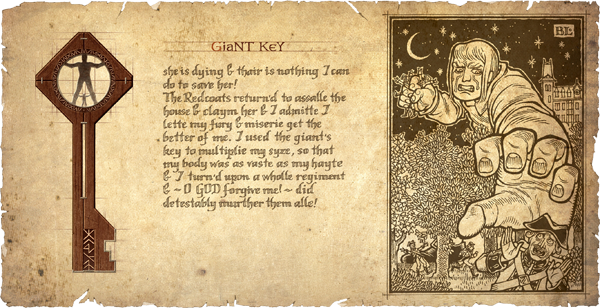 GiaNT KeY
BL
she is dying & thair is nothing I can
do to save her!
The Redcoats return'd to assalle the
house & claym her & I admitte I
lette my fury & miserie get the
better of me. I used the giant's
key to multiplie my syze, so that
my body was as vaste as my hayte
& I turn'd upon a whole regiment
& ~ O GOD forgive me! ~ did
detestably murther them alle!